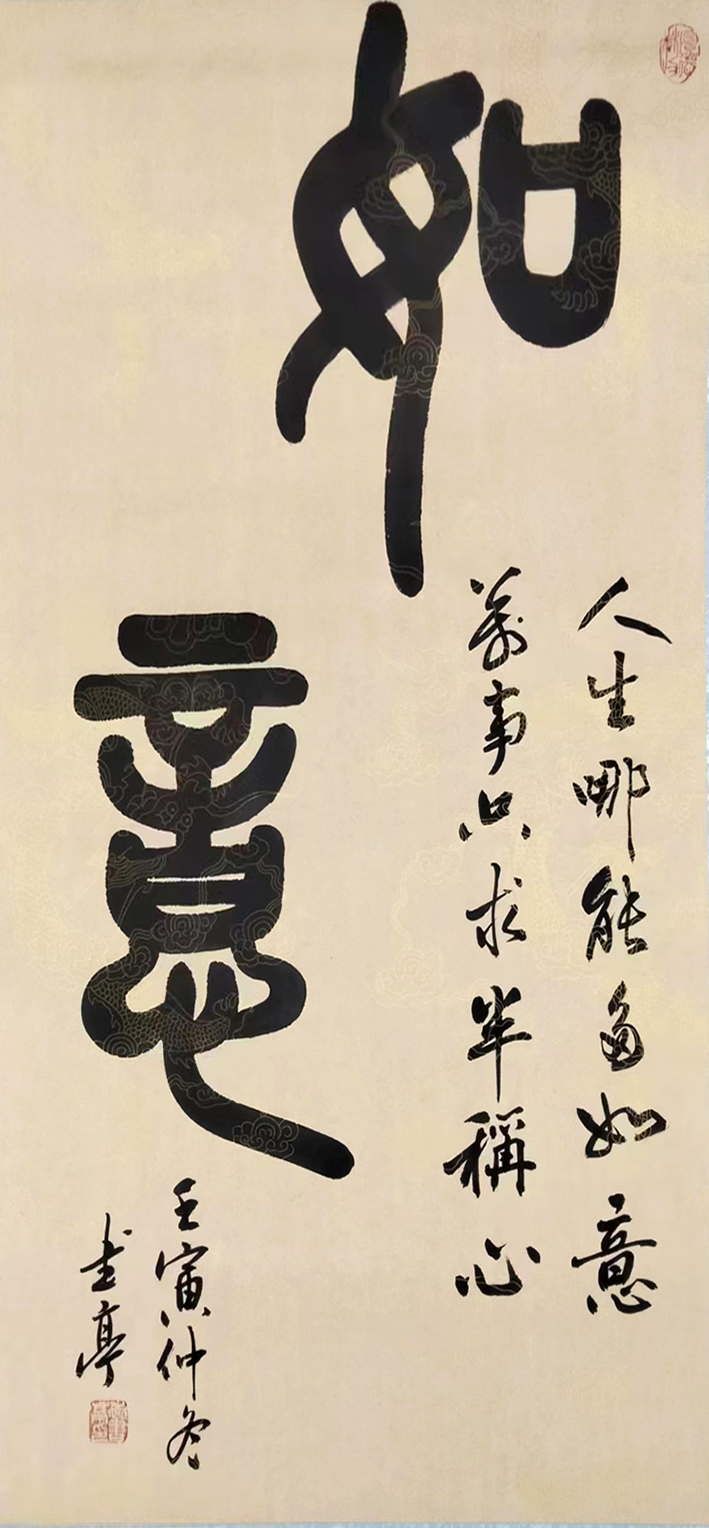 如意
人生哪能多如意
萬事只求半稱心
壬寅仲冬